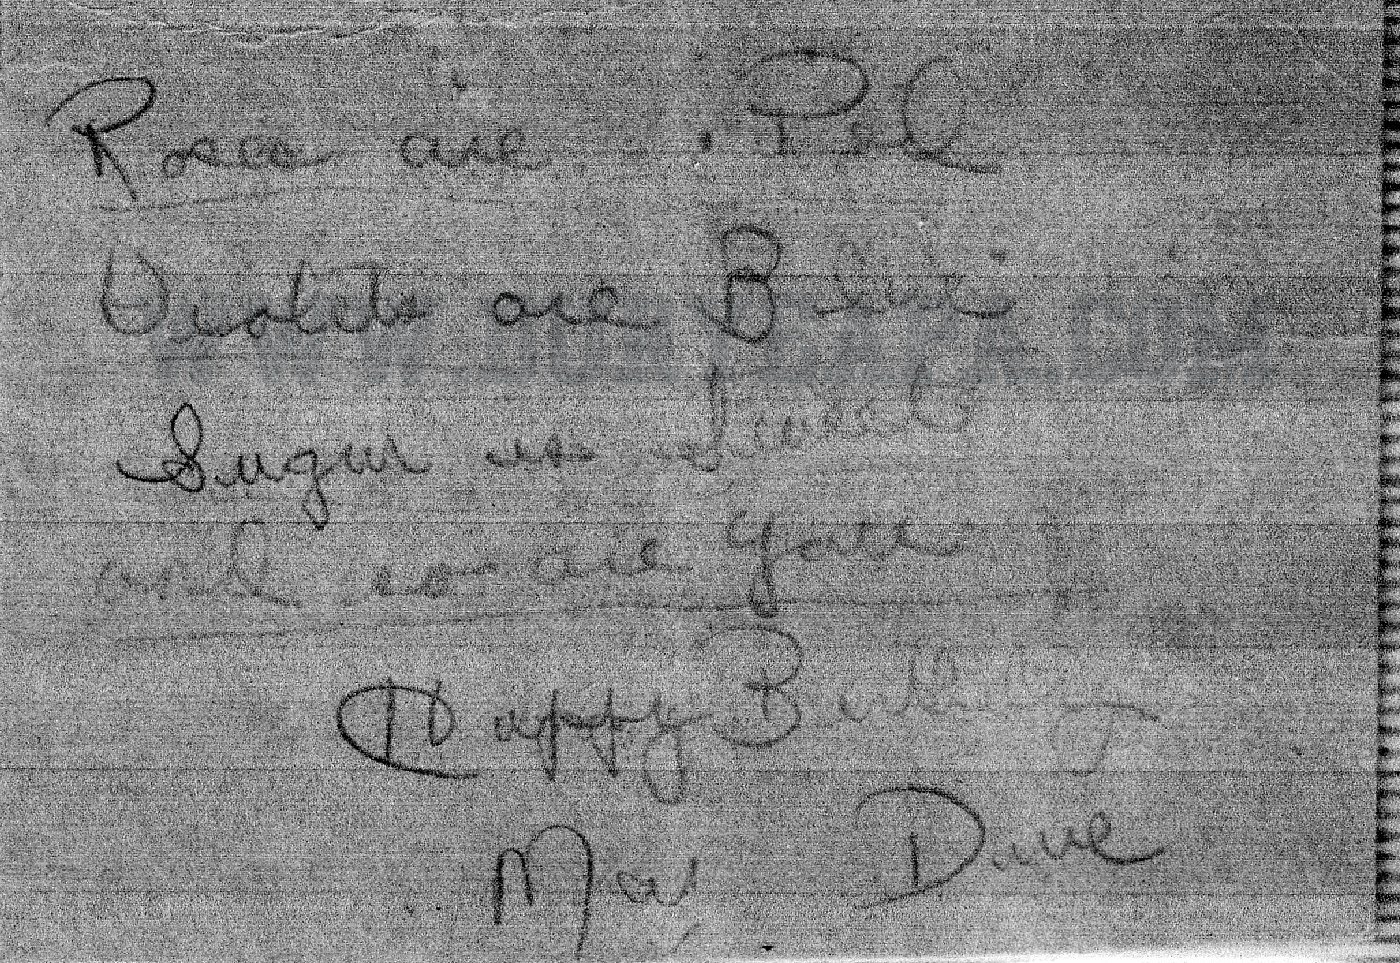 Roses are Red
Violets are Blue
Sugar is Sweet
and so are you
Happy Birthday
Dave